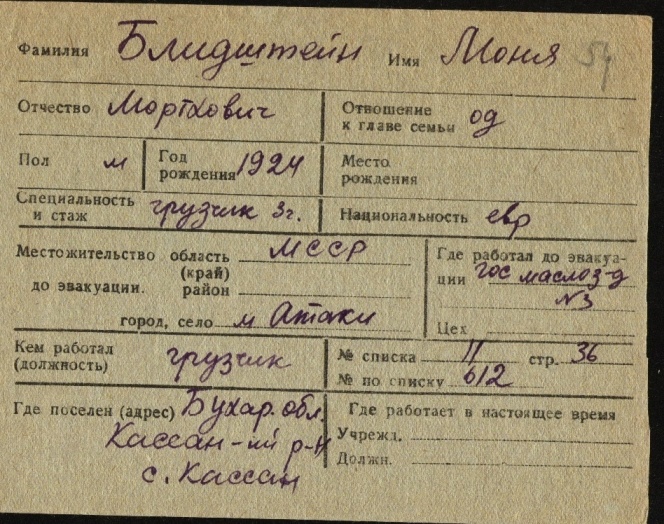 Фамилия Блидштейн Имя Моня 54
Отчество Мортхович Отношение к главе семьи од
Пол м Год рождения 1924 Место рождения
Специальность и стаж грузчик 3г. Национальность евр
Местожительство до эвакуации. область (край) МССР
район
город, село м Атаки
Где работал до эвакуации гос маслоз-д
№3
Цех
Кем работал (должность) грузчик
№ списка 11 стр. 36
№ по списку 612
Где поселен (адрес) Бухар. обл.
Кассан-ий р-н
с. Кассан
Где работает в настоящее время
Учрежд.
Должн.